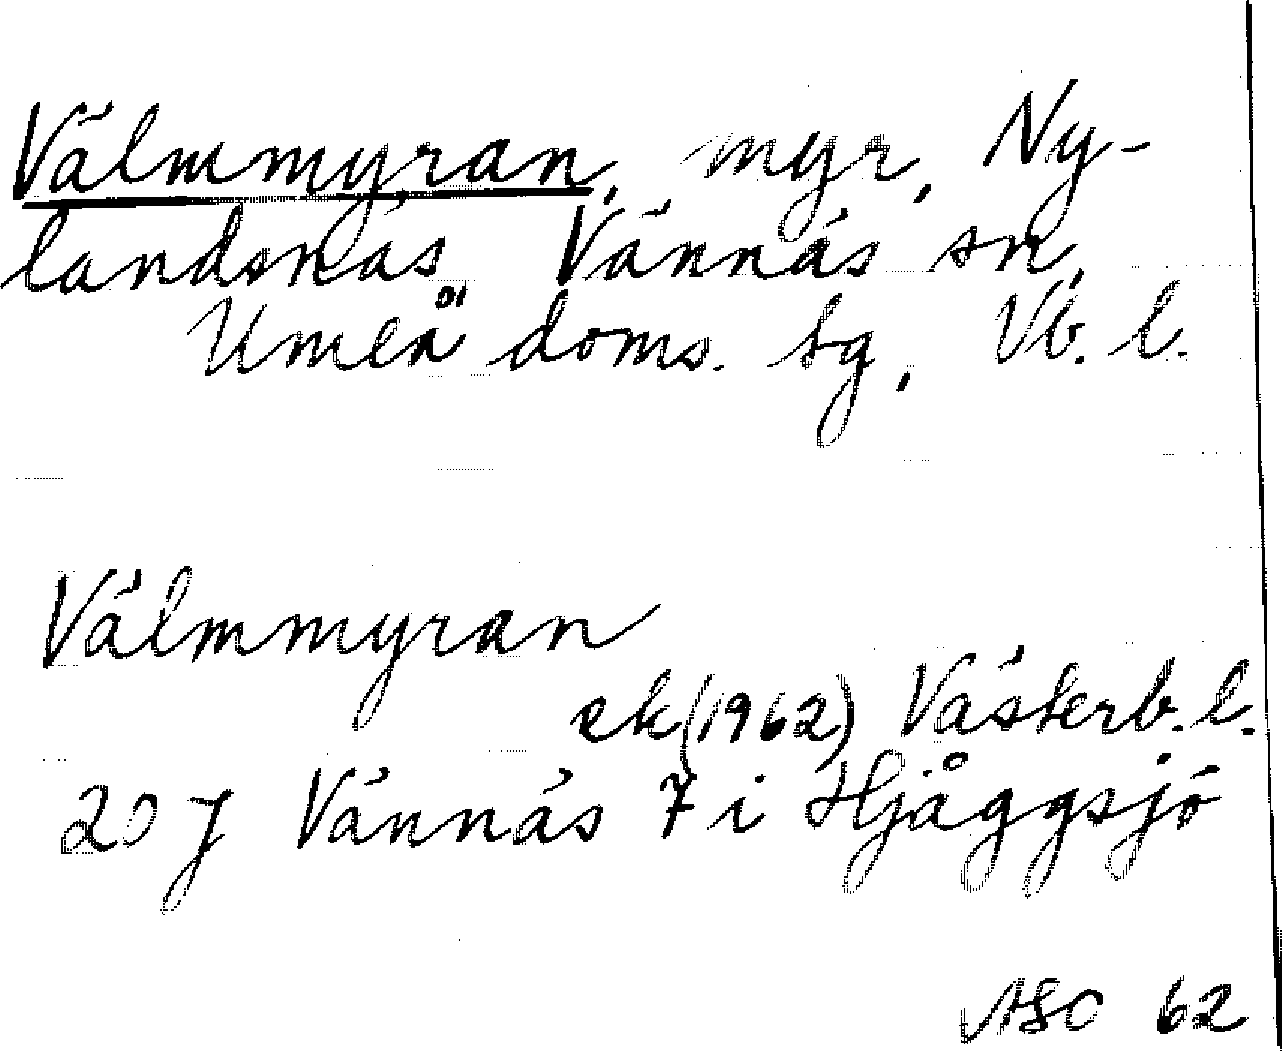 Välmmyran, myr, Ny-
landsnäs, Vännäs sn,
Umeå doms. sg, Vb. l.
Välmmyran
ek (1962) Västerb. l.
20 J Vännäs 7 i Hjåggsjö
62